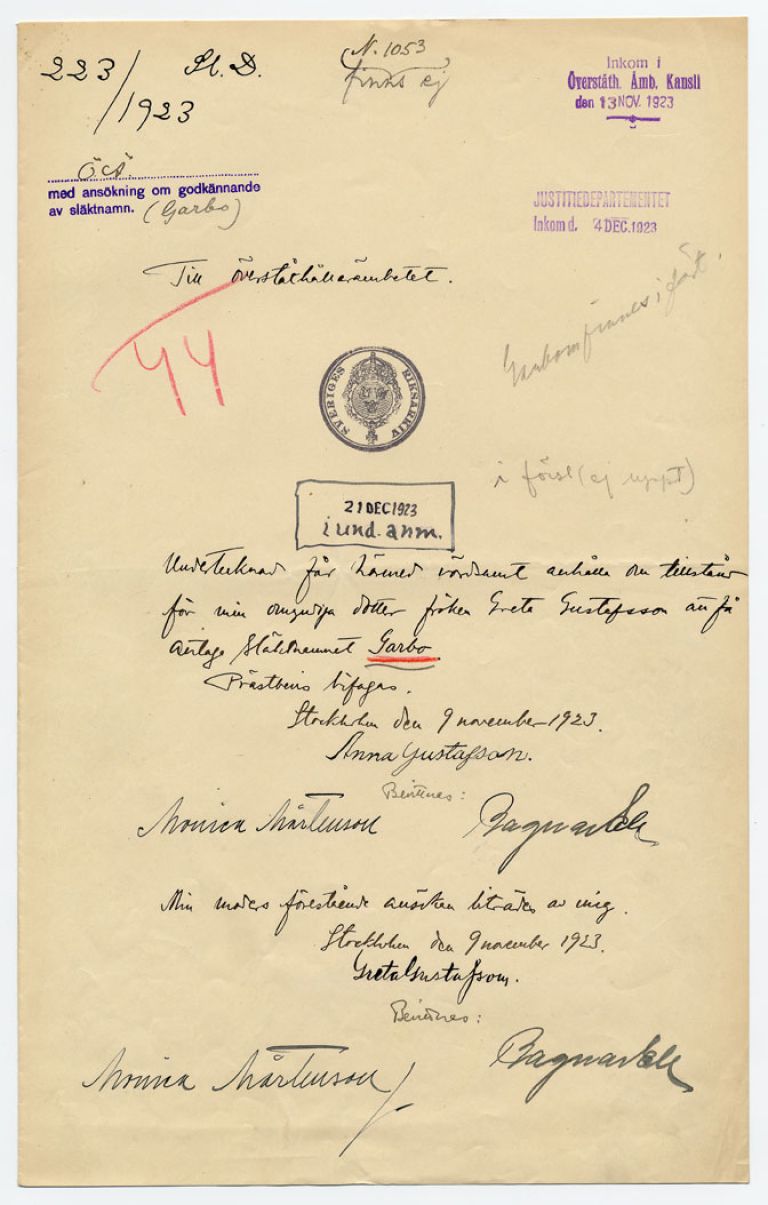 223/1923
St. D.
N. 1053
finns ej
Inkom i
Överståth. Ämb. Kansli
den 13 NOV. 1923
ÖÄ.
med ansökning om godkännande
av släktnamn. (Garbo)
JUSTITIEDEPARTEMENTET
Inkom d. 4 DEC. 1923
Till Överståthållarämbetet.
44
SVERIGES RIKSARKIV
21 DEC 1923
i und. anm.
Undertecknad får härmed vördsamt anhålla om tillstånd
för min omyndiga dotter fröken Greta Gustafsson att få
antaga släktnamnet Garbo.
Prästbevis bifogas.
Stockholm den 9 november 1923.
Anna Gustafsson.
Bevittnas:
Monica Mårtenson
Min moders förestående ansökan biträdes av mig.
Stockholm den 9 november 1923.
Greta Gustafsson.
Bevittnas:
Monica Mårtenson